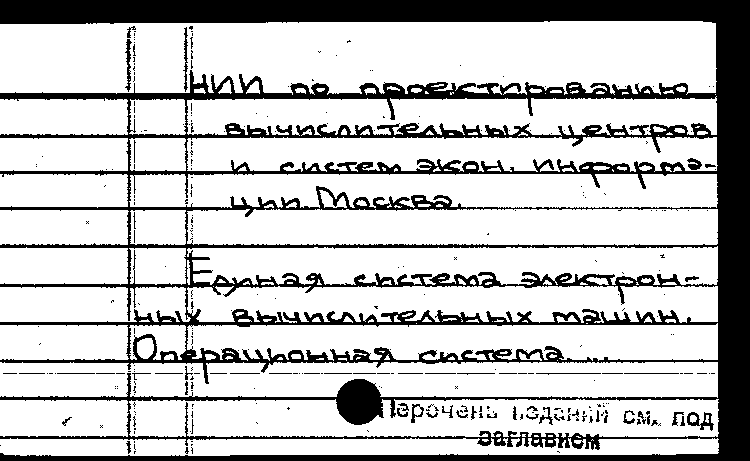 НИИ по проектированию
вычислительных центров
и систем экон. информа-
ции. Москва.
Единая система электрон-
ных вычислительных машин.
Операционная система. ...
Перечень изданий см. под
заглавием